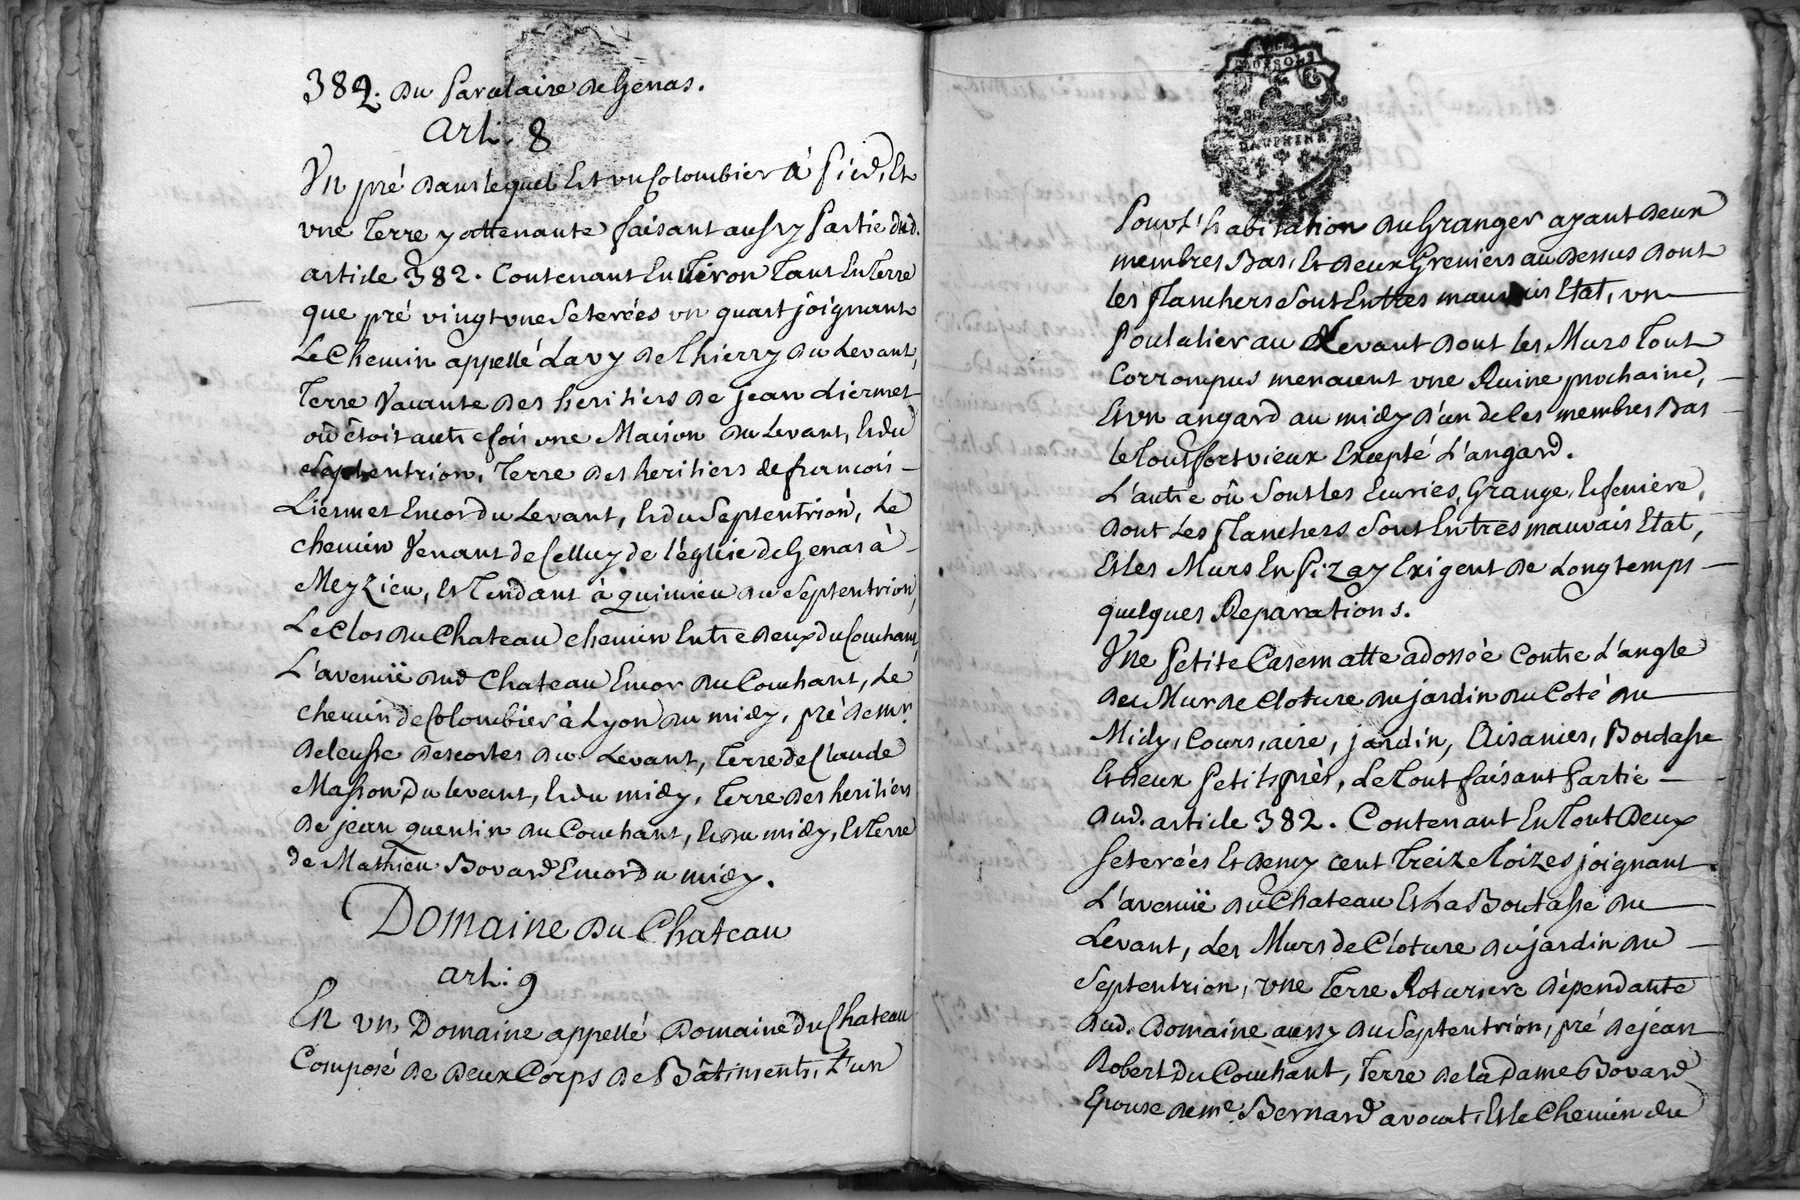 382. du Parcelaire de Genas.
Art. 8
Un pré dans lequel Est un Colombier à Pied, Et
une Terre y attenante faisant aussy Partie dud.
article 382. Contenant Environ Tant En Terre
que pré vingt une Seterées un quart joignant
Le Chemin appellé Lavy de Thierry du Levant,
Terre Vacante des heritiers de jean Liermet
où êtoit autrefois une Maison du Levant, Et du
Septentrion, Terre des heritiers de françois
Liermet Encor du Levant, Et du Septentrion, Le
chemin Venant de Celluy de l'église de Genas à
Meyzieu, Et Tendant à quinieu du Septentrion,
Le Clos du Chateau chemin Entre deux du Couchant,
L'avenuë dud Chateau Encor du Couchant, Le
chemin de Colombier à Lyon du midy, pré de mr.
deleusse descortes du Levant, Terre de Claude
Masson du levant, Et du midy, Terre des heritiers
de jean quentin du Couchant, Et du midy, Et Terre
de Mathieu Bovard Encor du midy.
Domaine du Chateau
art. 9
En un Domaine appellé Domaine du Chateau
Composé de deux Corps de Bâtiments, L'un
DAUPHINE
Pour L'habitation du Granger ayant deux
membres Bas, Et deux Greniers au dessus dont
les Planchers sont En très mauvais Etat, un
Poulalier au Levant dont les Murs Tout
Corrompus menacent une Ruine prochaine,
Et un angard au midy d'un de ces membres Bas
le Tout fort vieux Excepté L'angard.
L'autre où sont les Ecuries, Grange, Et feniere,
dont Les Planchers sont En très mauvais Etat,
Et les Murs En Pizay Exigent de Longtemps
quelques Reparations.
Une Petite Casematte adossée contre L'angle
du Mur de Cloture du jardin du Coté du
Midy, Cours, aire, jardin, Aisanies, Boutasse
Et deux Petits près, Le Tout faisant Partie
dud. article 382. Contenant En Tout Deux
Seterées Et demy cent Treize Toizes joignant
L'avenuë du Chateau Et La Boutasse du
Levant, Les Murs de Cloture du jardin du
Septentrion, une Terre Roturiere dépendante
dud. Domaine aussy du Septentrion, pré de jean
Robert Du Couchant, Terre de la Dame Bovard
Epouse de me. Bernard avocat, Et le Chemin du